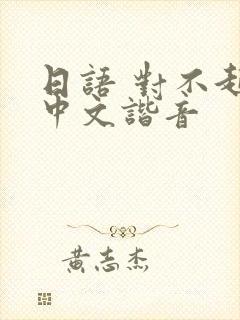 日語 對不起
中文諧音
黃志杰